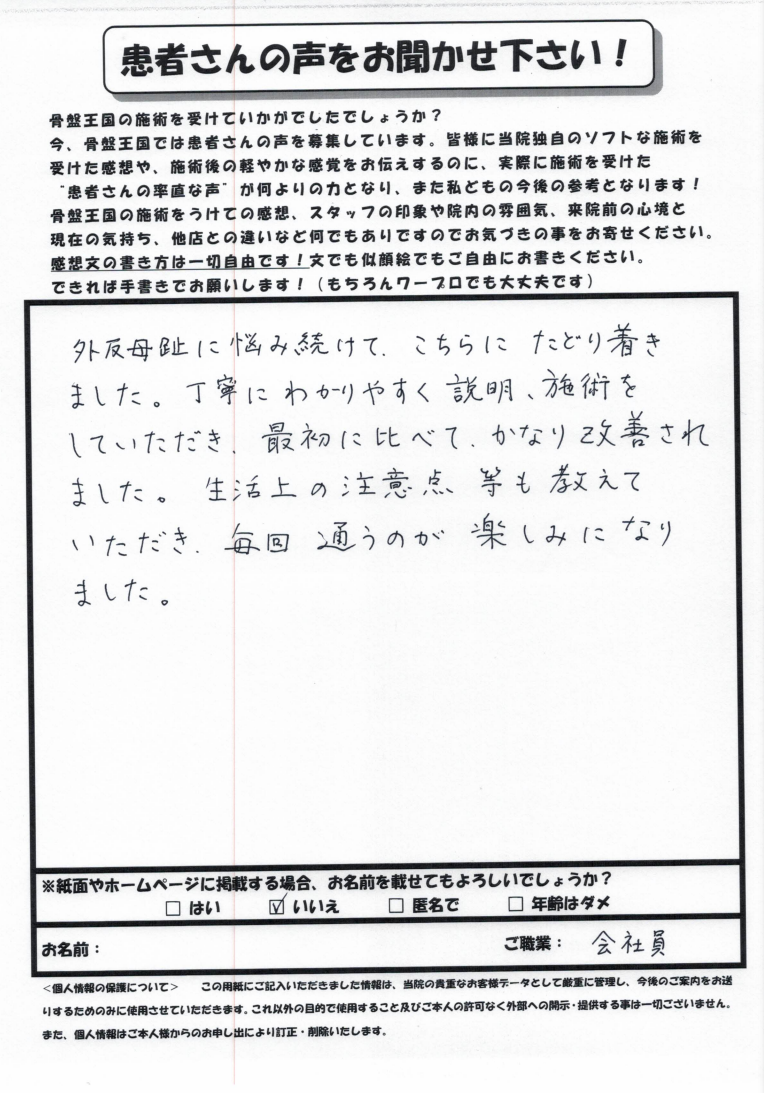 患者さんの声をお聞かせ下さい！
骨盤王国の施術を受けていかがでしたでしょうか？
今、骨盤王国では患者さんの声を募集しています。皆様に当院独自のソフトな施術を
受けた感想や、施術後の軽やかな感覚をお伝えするのに、実際に施術を受けた
“患者さんの率直な声”が何よりの力となり、また私どもの今後の参考となります！
骨盤王国の施術をうけての感想、スタッフの印象や院内の雰囲気、来院前の心境と
現在の気持ち、他店との違いなど何でもありですのでお気づきの事をお寄せください。
感想文の書き方は一切自由です！文でも似顔絵でもご自由にお書きください。
できれば手書きでお願いします！（もちろんワープロでも大丈夫です）
外反母趾に悩み続けて、こちらにたどり着き
ました。丁寧にわかりやすく説明、施術を
していただき、最初に比べて、かなり改善され
ました。生活上の注意点等も教えて
いただき、毎回通うのが楽しみになり
ました。
※紙面やホームページに掲載する場合、お名前を載せてもよろしいでしょうか？
□ はい ☑ いいえ □ 匿名で □ 年齢はダメ
お名前： ご職業： 会社員
＜個人情報の保護について＞ この用紙にご記入いただきました情報は、当院の貴重なお客様データとして厳重に管理し、今後のご案内をお送
りするためのみに使用させていただきます。これ以外の目的で使用すること及びご本人の許可なく外部への開示・提供する事は一切ございません。
また、個人情報はご本人様からのお申し出により訂正・削除いたします。